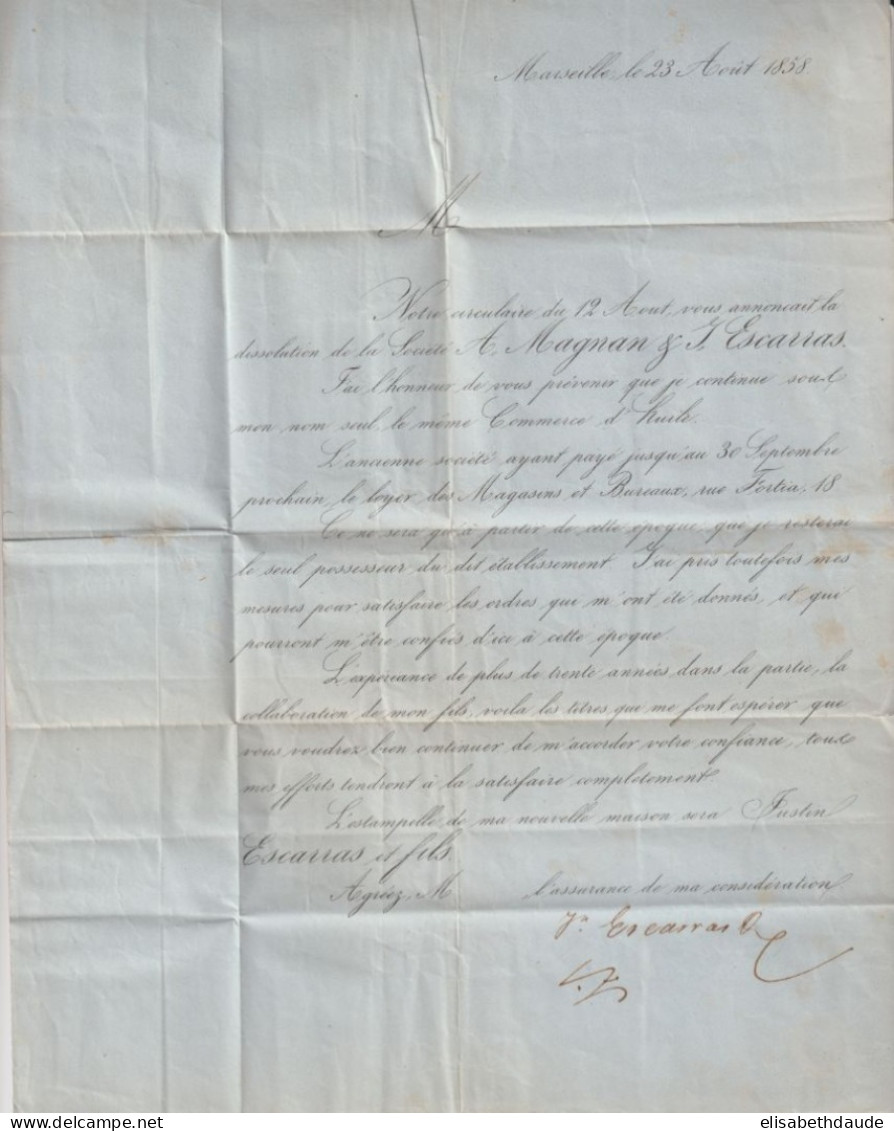 Marseille, le 23 Août 1858.
M
Notre circulaire du 12 Aout, vous annoncait la
dissolution de la Société A. Magnan & J. Escarras.
J'ai l'honneur de vous prévenir que je continue sous
mon nom seul, le même Commerce d'huile.
L'ancienne société ayant payé jusqu'au 30 Septembre
prochain, le loyer des Magasins et Bureaux, rue Fortia, 18
Ce ne sera qu'à partir de cette époque, que je resterai
le seul possesseur du dit établissement. J'ai pris toutefois mes
mesures pour satisfaire les ordres que m'ont été donnés, et qui
pourront m'être confiés d'ici à cette époque.
L'expériance de plus de trente années dans la partie, la
collaboration de mon fils, voila les titres que me font espérer que
vous voudrez bien continuer de m'accorder votre confiance, tous
mes efforts tendront à la satisfaire complètement.
L'estampille de ma nouvelle maison sera Justin
Escarras et fils.
Agréez, M l'assurance de ma considération
Jn Escarras
elisabethdaude